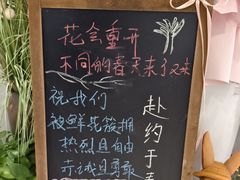 花会重开
不同的春天来了又来
祝我们
被鲜花簇拥
热烈且自由
赤诚且勇敢
赴约于春